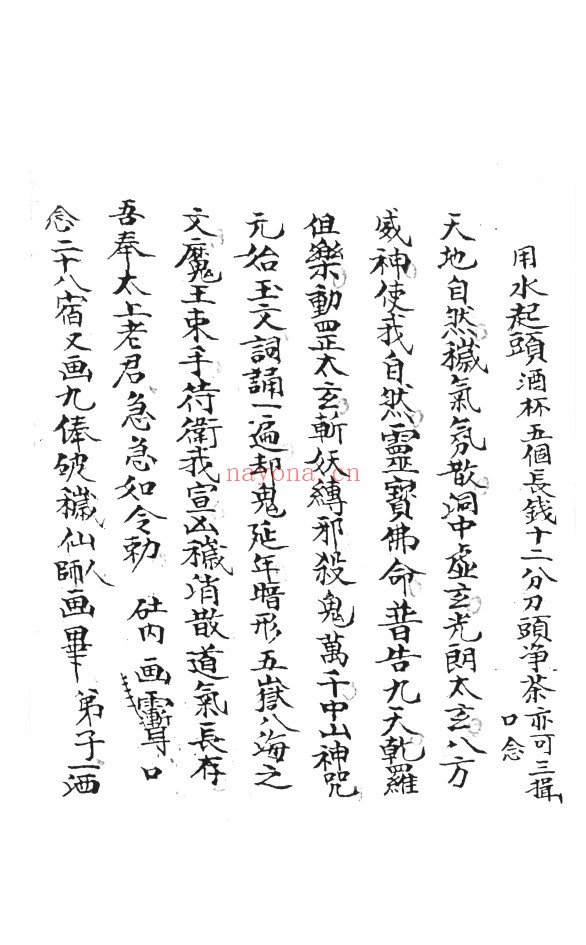 用水起頭酒杯五個長錢十二分刀頭净茶亦可三揖
口念
天地自然穢氣氛散洞中虛玄光朗太玄八方
威神使我自然靈寶佛命普告九天乾羅
但樂動罡太玄斬妖縛邪殺鬼萬千中山神咒
元始玉文詞誦一遍却鬼延年暗形五嶽八海之
文魔王束手符衛我宣凶穢消散道氣長存
吾奉太上老君急急如令勅 畫 口
念二十八宿又画九俸破穢仙師人画畢 弟子一洒
nayona.cn